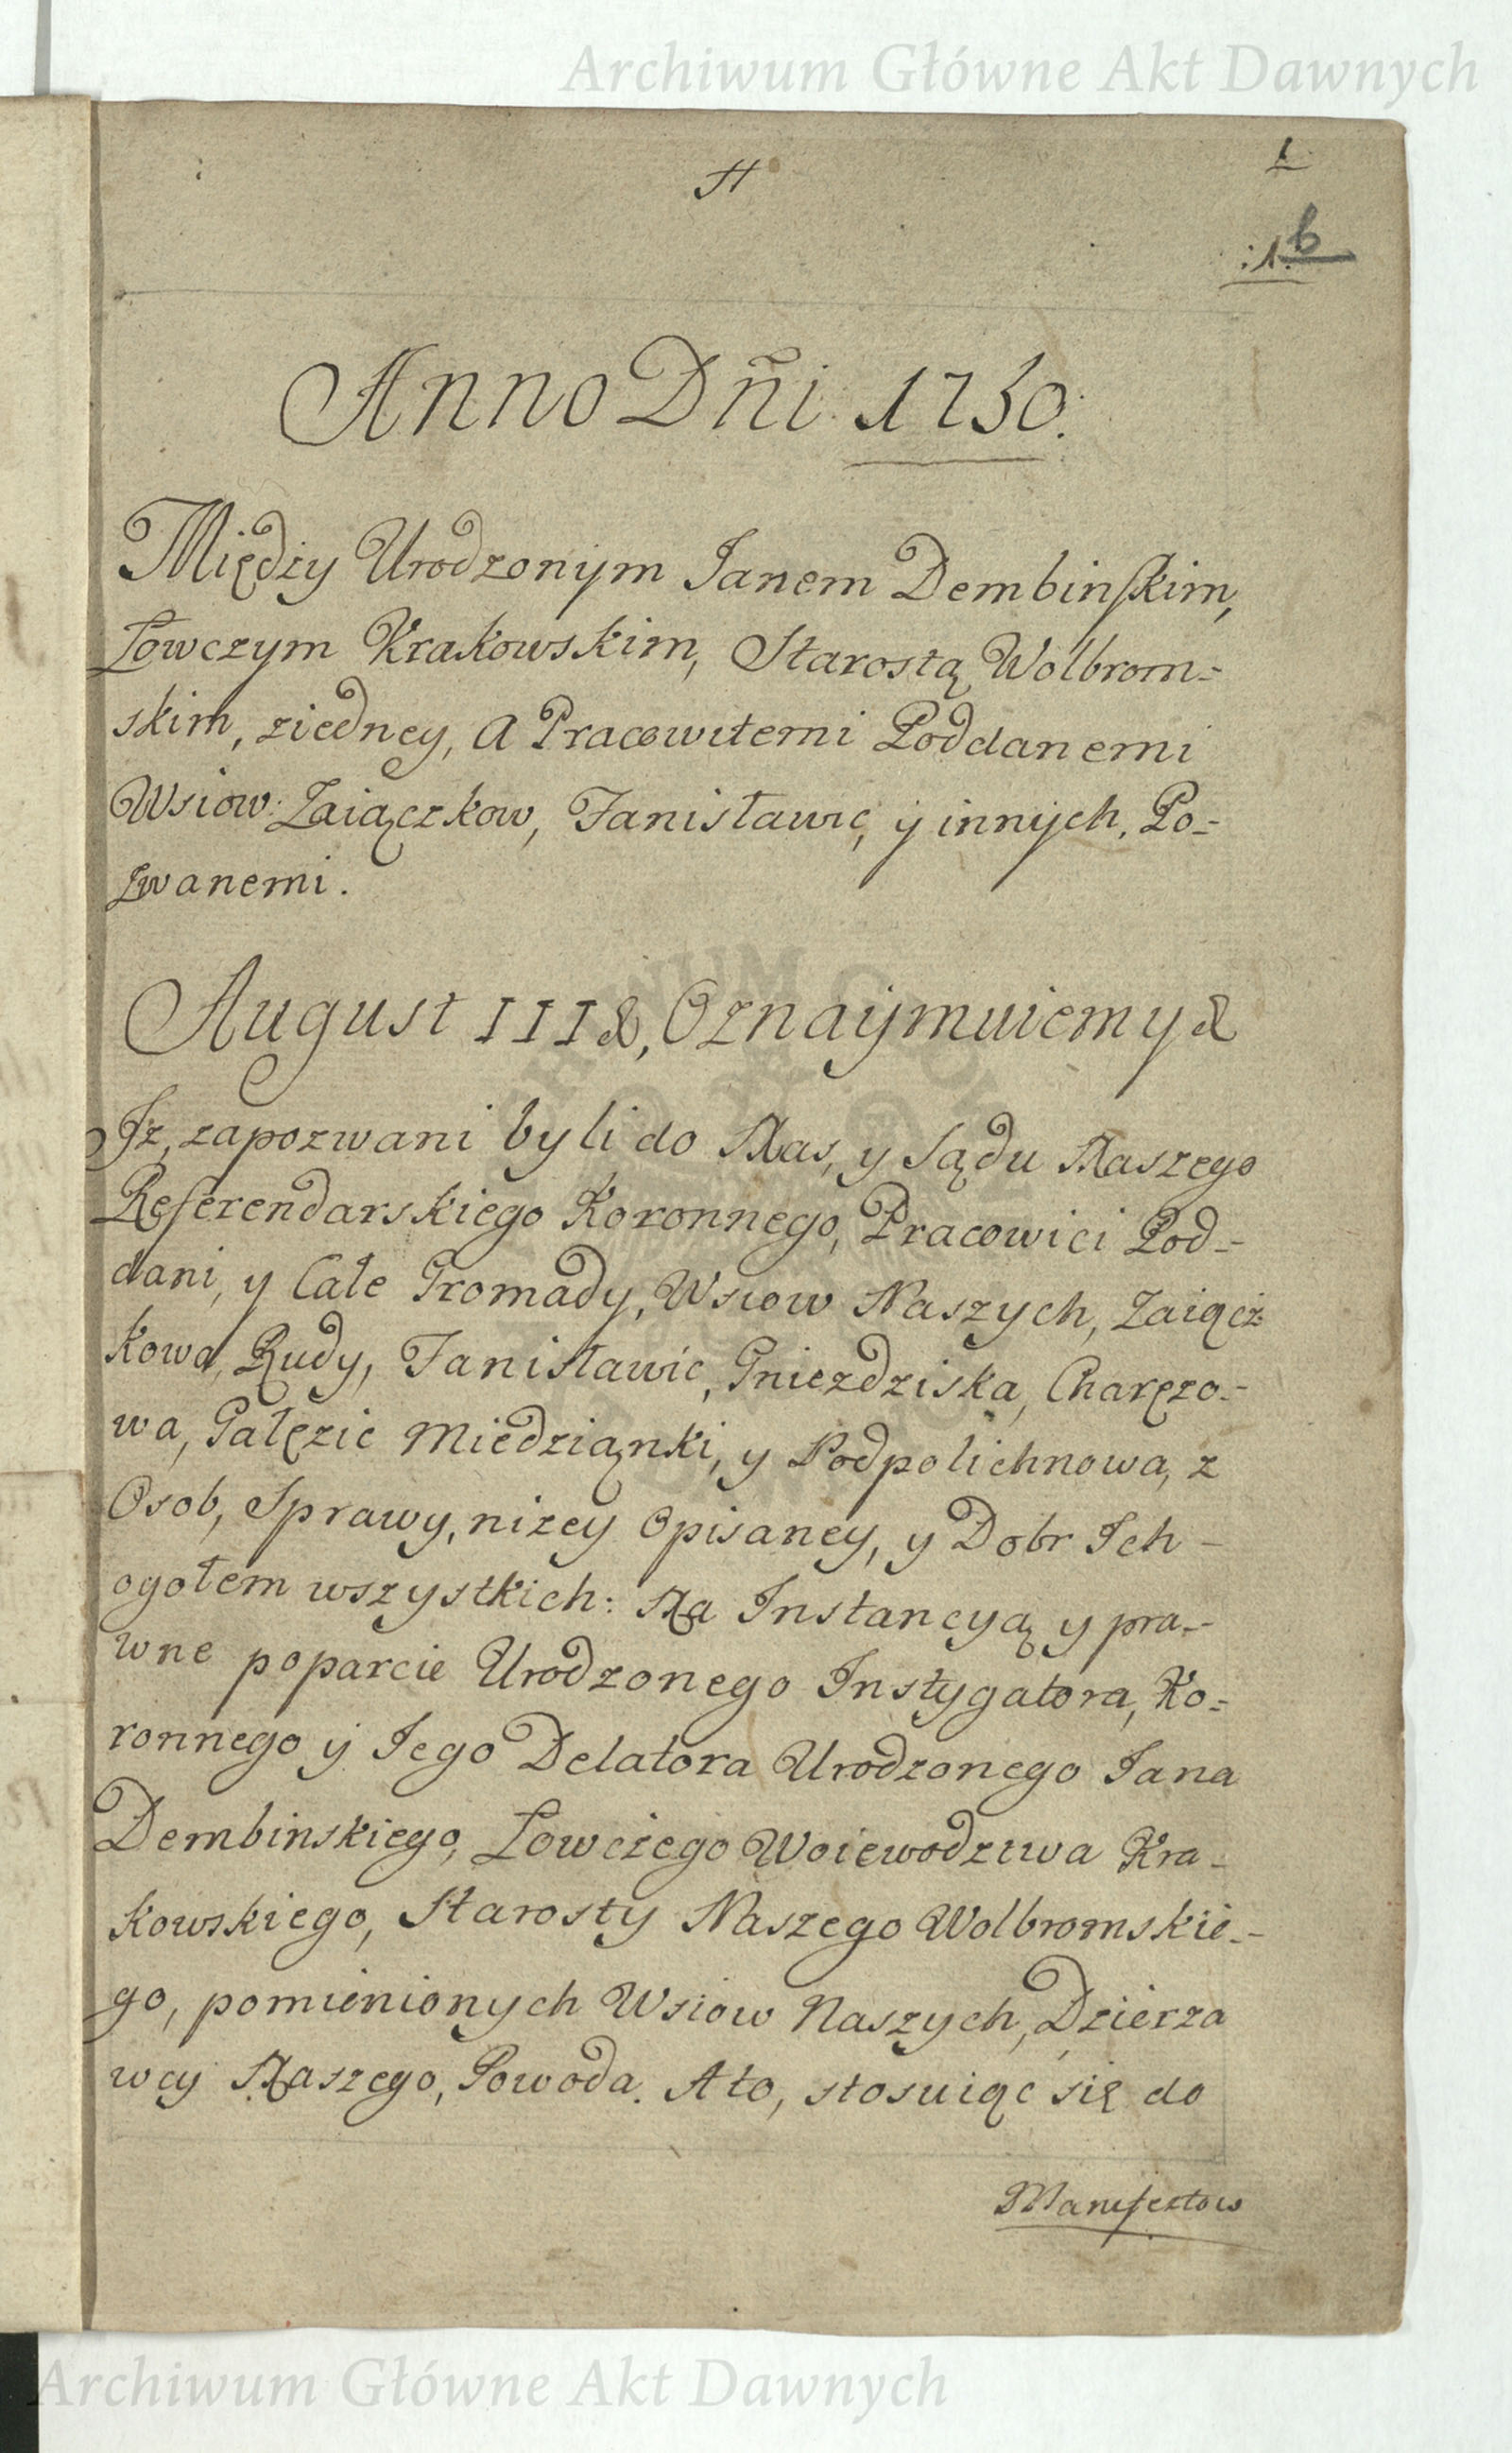 Archiwum Główne Akt Dawnych
1
:1. b
Anno Dñi 1750.
Między Urodzonym Janem Dembinskim,
Łowczym Krakowskim, Starostą Wolbrom=
skim, ziedney, A Pracowitemi Poddanemi
Wsiow: Zaiączkow, Fanisławic, y innych, Po=
zwanemi.
August III &, Oznaymuiemy &
Iz, zapozwani byli do Nas, y Sądu Naszego
Referendarskiego Koronnego, Pracowici Pod=
dani, y Całe Gromady, Wsiow Naszych, Zaiącz
kowa, Rudy, Fanisławic, Gniezdziska, Charęzo=
wa, Gałęzic Miedzianki, y Podpolichnowa, z
Osob, Sprawy, nizey Opisaney, y Dobr Ich -
ogołem wszystkich: Na Instancyą y pra=
wne poparcie Urodzonego Instygatora, Ko=
ronnego y Iego Delatora Urodzonego Jana
Dembinskiego, Łowczego Woiewodztwa Kra-
kowskiego, Starosty Naszego Wolbromskie-
go, pomienionych Wsiow Naszych, Dzierza
wcy Naszego, Powoda. A to, stosuiąc się do
Manifestow
Archiwum Główne Akt Dawnych